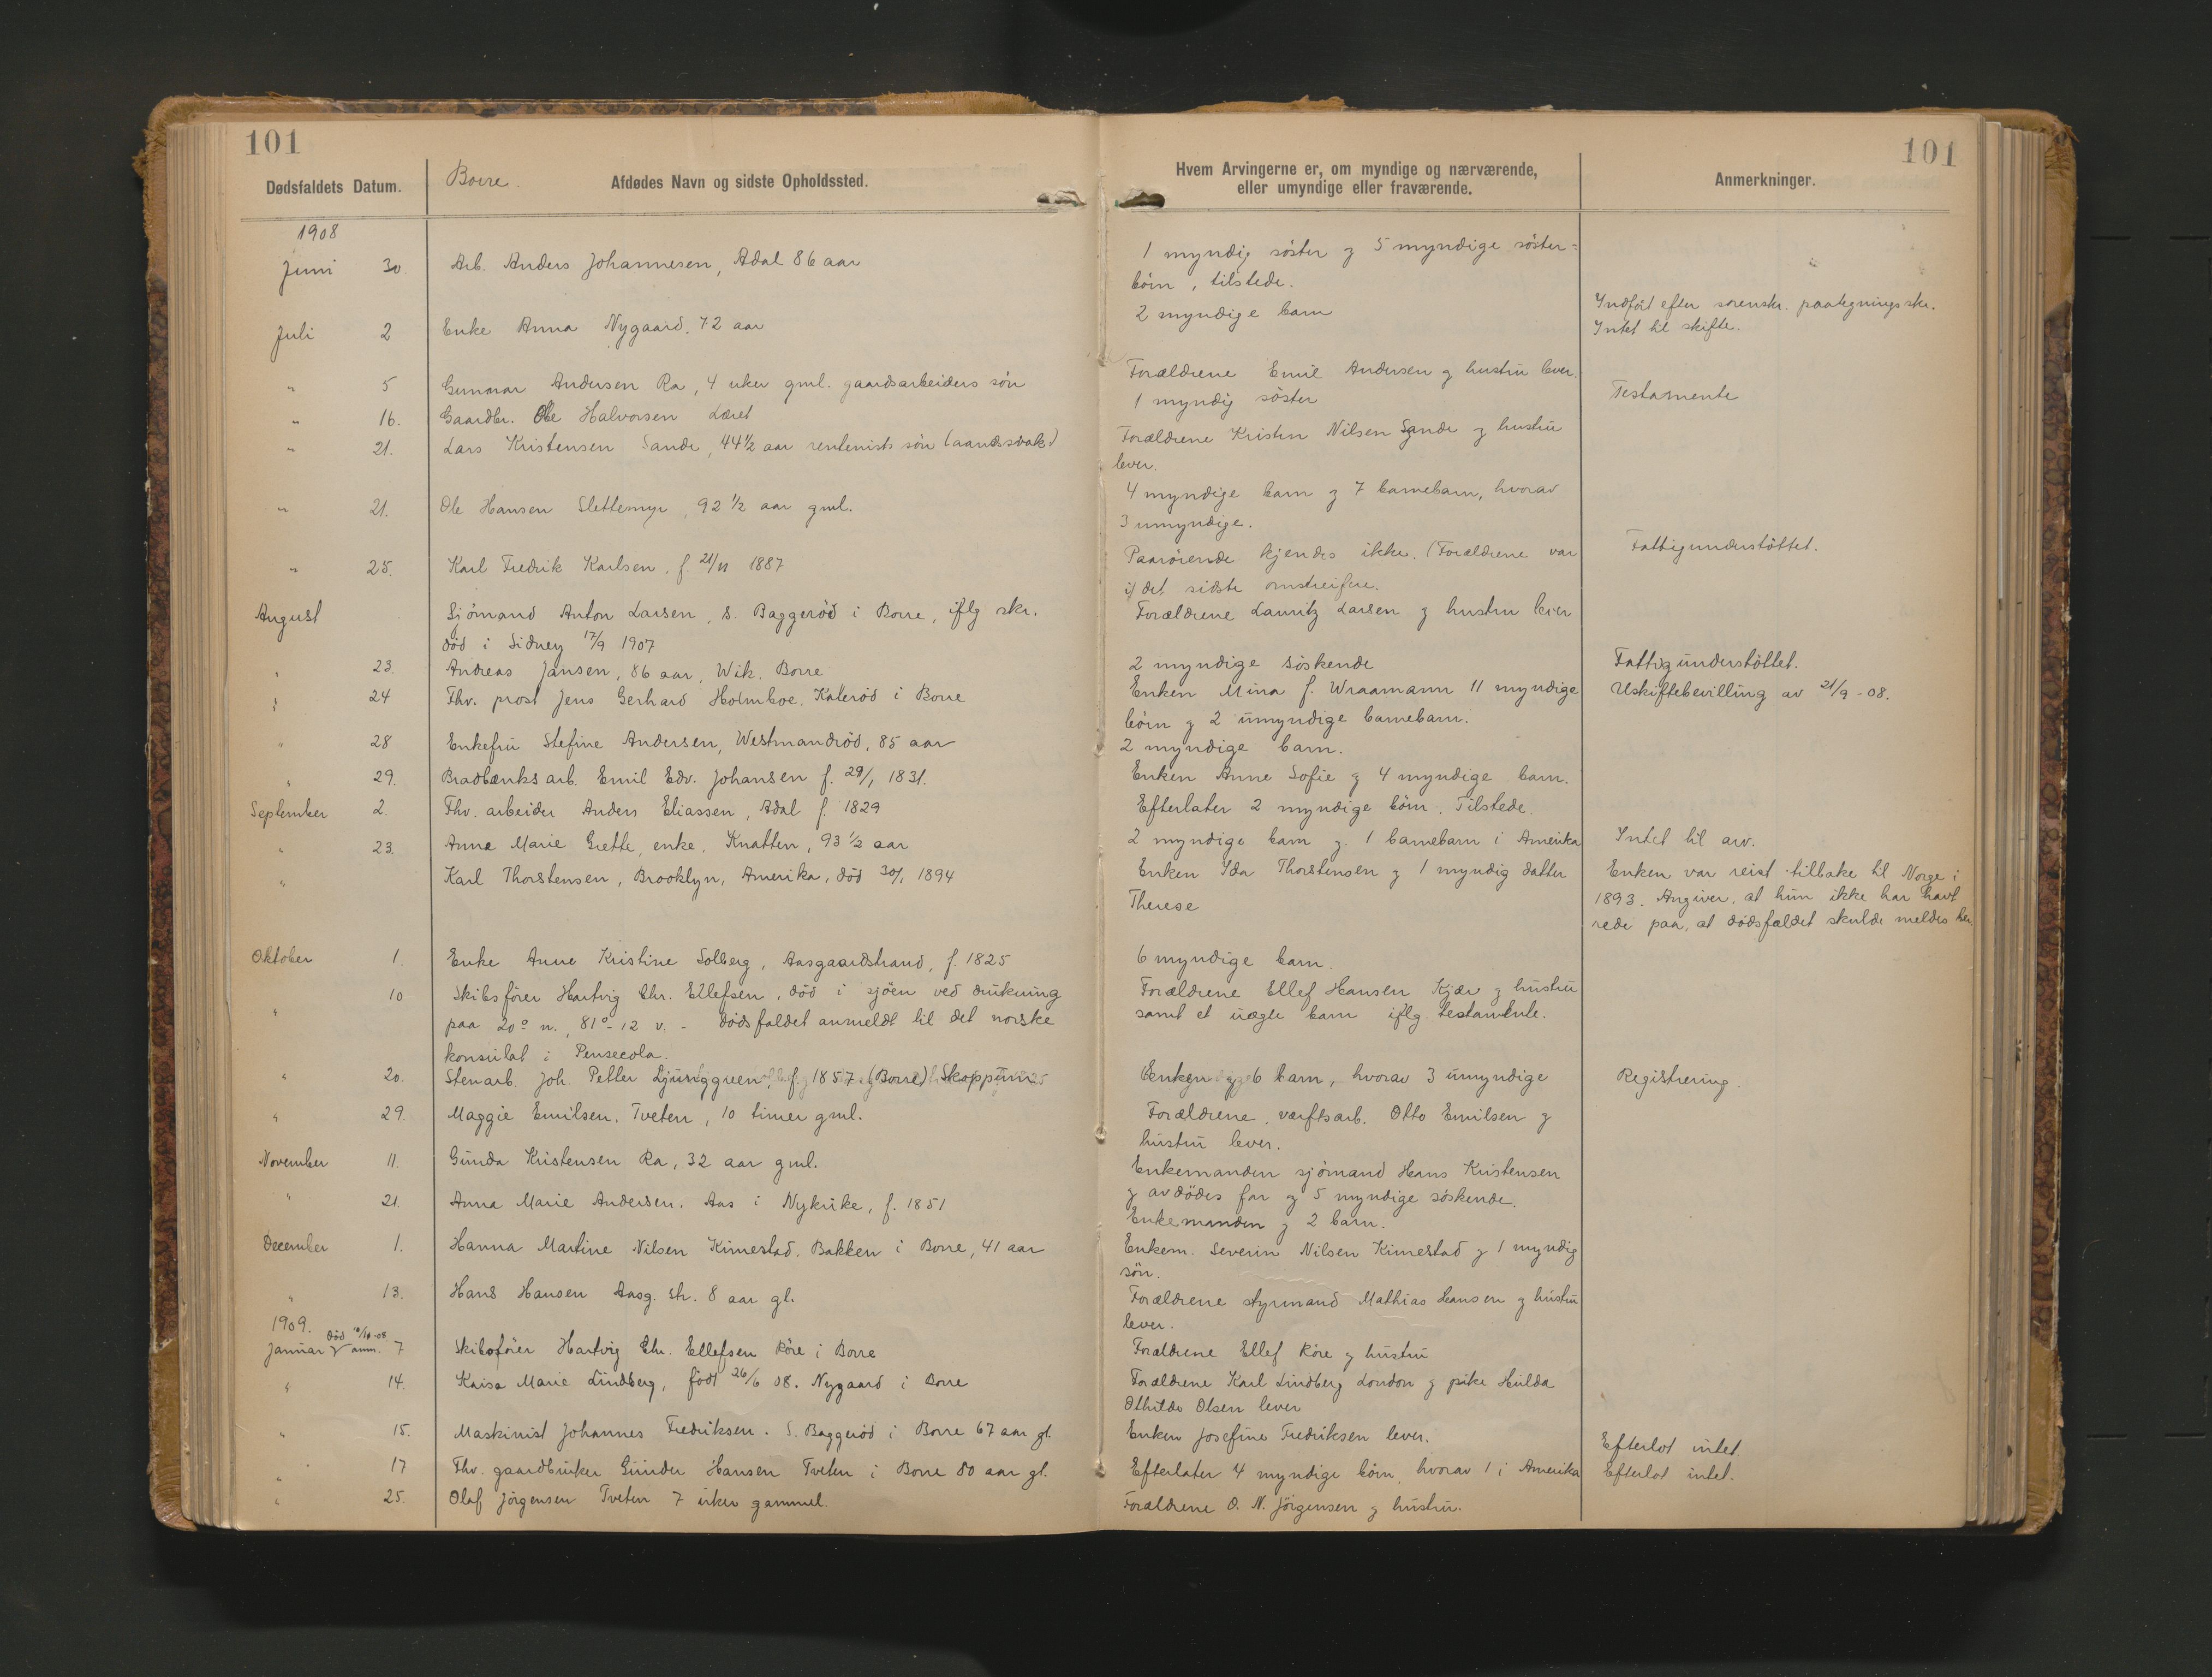 101
101
Dødsfaldets Datum.
Borre.
Afdødes Navn og sidste Opholdssted.
Hvem Arvingerne er, om myndige og nærværende,
eller umyndige eller fraværende.
Anmerkninger.
1908
Juni 30. Arb. Anders Johannesen, Adal 86 aar
1 myndig søster og 5 myndige søster=
børn, tilstede.
Juli 2 Enke Anna Nygaard. 72 aar
2 myndige barn
Indført efter sorenskr. paategningsskr.
Intet til skifte.
" 5 Gunnar Andersen Ra, 4 uker gml. gaardsarbeiders søn
Forældrene Emil Andersen og hustru lever.
" 16. Gaardbr. Ole Halvorsen Læret
1 myndig søster
Testamente
" 21. Lars Kristensen Sande, 44½ aar rentenists søn (aandssvak)
Forældrene Kristen Nilsen Sande og hustru
lever.
" 21. Ole Hansen Slettemyr, 92½ aar gml.
4 myndige barn og 7 barnebarn, hvorav
3 umyndige.
" 25. Karl Fredrik Karlsen. f. 21/11 1887
Paarørende kjendes ikke. (Forældrene var
i det sidste omstreifere.
Fattigunderstøttet.
August Sjømand Anton Larsen, S. Baggerød i Borre, iflg skr.
død i Sidney 17/9 1907
Forældrene Lauritz Larsen og hustru lever
" 23. Andreas Jansen, 86 aar, Wik. Borre
2 myndige søskende
Fattigunderstøttet.
" 24 Fhv. prost Jens Gerhard Holmboe. Katerød i Borre
Enken Mina f. Wraamann 11 myndige
børn og 2 umyndige barnebarn.
Uskiftebevilling av 21/9 - 08.
" 28 Enkefru Stefine Andersen, Westmandrød, 85 aar
2 myndige barn.
" 29. Bradbænksarb. Emil Edv. Johansen f. 29/1 1831.
Enken Anne Sofie og 4 myndige barn.
September 2. Fhv. arbeider Anders Eliassen, Adal f. 1829
Efterlater 2 myndige børn. Tilstede.
" 23. Anne Marie Grette, enke. Knatten, 93½ aar
2 myndige barn og 1 barnebarn i Amerika
Intet til arv.
" Karl Thorstensen, Brooklyn, Amerika, død 30/1 1894
Enken Ida Thorstensen og 1 myndig datter
Therese
Enken var reist tilbake til Norge i
1893. Angiver, at hun ikke har havt
rede paa, at dødsfaldet skulde meldes her.
Oktober 1. Enke Anne Kristine Solberg, Aasgaardstrand, f. 1825
6 myndige barn.
" 10 Skibsfører Hartvig Chr. Ellefsen, død i sjøen ved drukning
paa 20° n., 81°-12 v. - Dødsfaldet anmeldt til det norske
konsulat i Pensecola.
Forældrene Ellef Hansen Kjær og hustru
samt et uægte barn iflg. testamente.
" 20. Stenarb. Joh. Petter Ljunggreen, f. 1857 (Borre) Skoppum
Enken og 6 barn, hvorav 3 umyndige
Registrering.
" 29. Maggie Emilsen. Tveten, 10 timer gml.
Forældrene, værftsarb. Otto Emilsen og
hustru lever.
November 11. Gunda Kristensen Ra, 32 aar gml.
Enkemanden sjømand Hans Kristensen
og avdødes far og 5 myndige søskende.
" 21. Anna Marie Andersen. Aas i Nykirke, f. 1851
Enkemanden og 2 barn.
December 1. Hanna Martine Nilsen Kimestad. Bakken i Borre, 41 aar
Enkem. Severin Nilsen Kimestad og 1 myndig
søn.
" 13. Hans Hansen Aasg. str. 8 aar gl.
Forældrene styrmand Mathias Hansen og hustru
lever.
1909.
Januar død 10/10-08 anm. 7 Skibsfører Hartvig Chr. Ellefsen Røre i Borre
Forældrene Ellef Røre og hustru
" 14. Kaisa Marie Lindberg, født 26/6 08. Nygaard i Borre
Forældrene Karl Lindberg London og pike Hulda
Othilde Olsen lever
" 15. Maskinist Johannes Fredriksen. S. Baggerød i Borre 67 aar gl.
Enken Josefine Fredriksen lever.
Efterlot intet.
" 17 Fhv. gaardbruker Gunder Hansen Tveten i Borre 80 aar gl.
Efterlater 4 myndige børn, hvorav 1 i Amerika
Efterlot intet.
" 25. Olaf Jørgensen Tveten 7 uker gammel.
Forældrene O. N. Jørgensen og hustru.